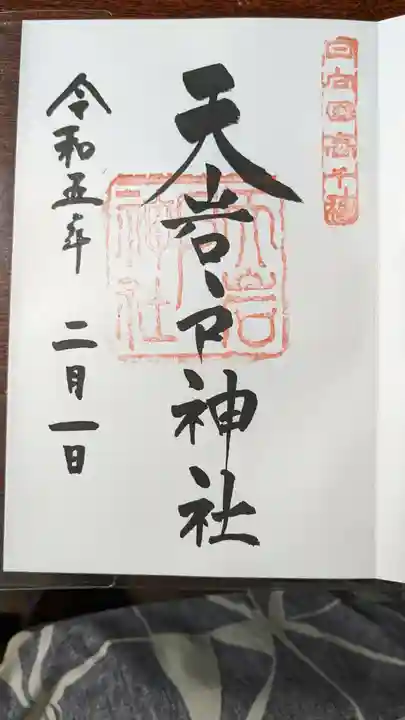 日向国高千穂
天岩戸神社
天岩戸神社
令和五年 二月一日